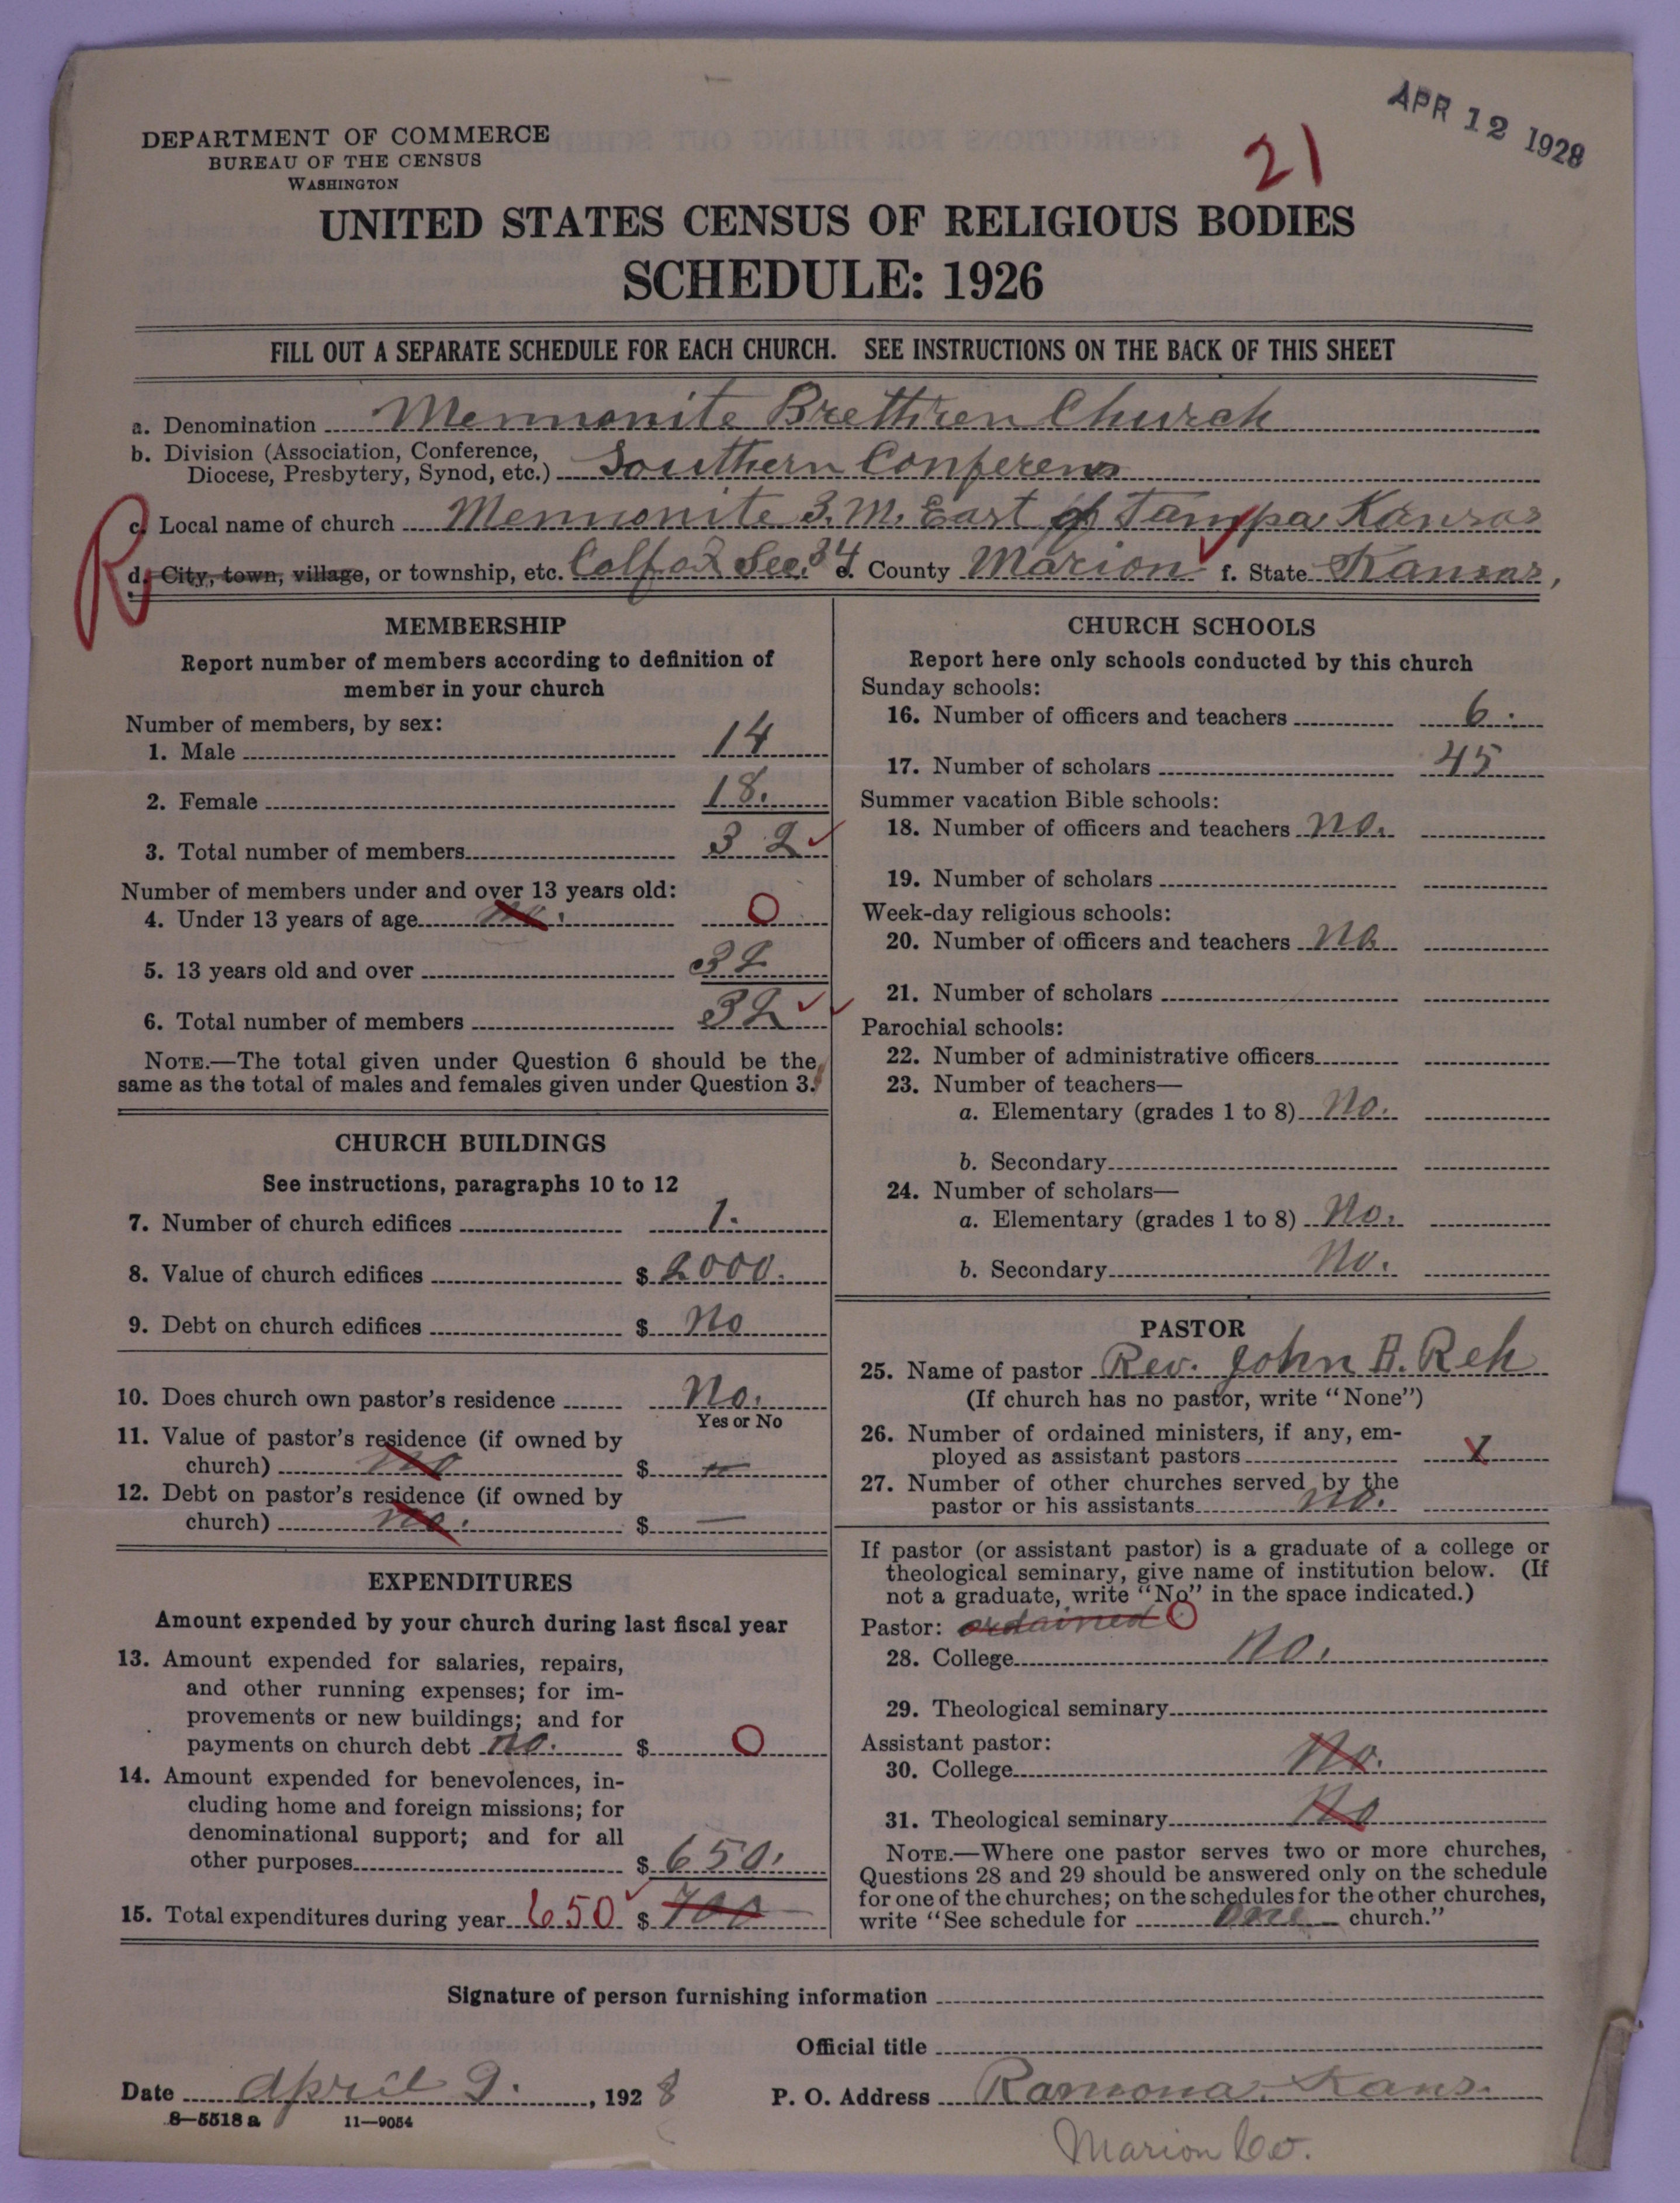 APR 12 1928
21
DEPARTMENT OF COMMERCE
BUREAU OF THE CENSUS
WASHINGTON
UNITED STATES CENSUS OF RELIGIOUS BODIES
SCHEDULE: 1926
FILL OUT A SEPARATE SCHEDULE FOR EACH CHURCH. SEE INSTRUCTIONS ON THE BACK OF THIS SHEET
a. Denomination Mennonite Brethren Church
b. Division (Association, Conference,
Diocese, Presbytery, Synod, etc.) Southern Conferens
R
c. Local name of church Mennonite B. M. East of Tampa Kansas
d. City, town, village, or township, etc. Colfax Sec. 34 e. County Marion f. State Kansas,
MEMBERSHIP
Report number of members according to definition of
member in your church
Number of members, by sex:
1. Male 14
2. Female 18.
3. Total number of members 32
Number of members under and over 13 years old:
4. Under 13 years of age no. 0
5. 13 years old and over 32
6. Total number of members 32
NOTE.—The total given under Question 6 should be the
same as the total of males and females given under Question 3.
CHURCH BUILDINGS
See instructions, paragraphs 10 to 12
7. Number of church edifices 1.
8. Value of church edifices $ 2000.
9. Debt on church edifices $ No
10. Does church own pastor's residence No.
Yes or No
11. Value of pastor's residence (if owned by
church) no $ —
12. Debt on pastor's residence (if owned by
church) no. $ —
EXPENDITURES
Amount expended by your church during last fiscal year
13. Amount expended for salaries, repairs,
and other running expenses; for im-
provements or new buildings; and for
payments on church debt no. $ 0
14. Amount expended for benevolences, in-
cluding home and foreign missions; for
denominational support; and for all
other purposes $ 650.
15. Total expenditures during year 650 $ 700
CHURCH SCHOOLS
Report here only schools conducted by this church
Sunday schools:
16. Number of officers and teachers 6.
17. Number of scholars 45
Summer vacation Bible schools:
18. Number of officers and teachers no.
19. Number of scholars
Week-day religious schools:
20. Number of officers and teachers No
21. Number of scholars
Parochial schools:
22. Number of administrative officers
23. Number of teachers—
a. Elementary (grades 1 to 8) No.
b. Secondary
24. Number of scholars—
a. Elementary (grades 1 to 8) No.
b. Secondary No.
PASTOR
25. Name of pastor Rev. John B. Reh
(If church has no pastor, write "None")
26. Number of ordained ministers, if any, em-
ployed as assistant pastors X
27. Number of other churches served by the
pastor or his assistants no.
If pastor (or assistant pastor) is a graduate of a college or
theological seminary, give name of institution below. (If
not a graduate, write "No" in the space indicated.)
Pastor: ordained O
28. College No.
29. Theological seminary
Assistant pastor:
30. College No.
31. Theological seminary No
NOTE.—Where one pastor serves two or more churches,
Questions 28 and 29 should be answered only on the schedule
for one of the churches; on the schedules for the other churches,
write "See schedule for one church."
Signature of person furnishing information
Official title
Date April 9. , 1928 P. O. Address Ramona, Kans.
8—5518 a 11—9054
Marion Co.